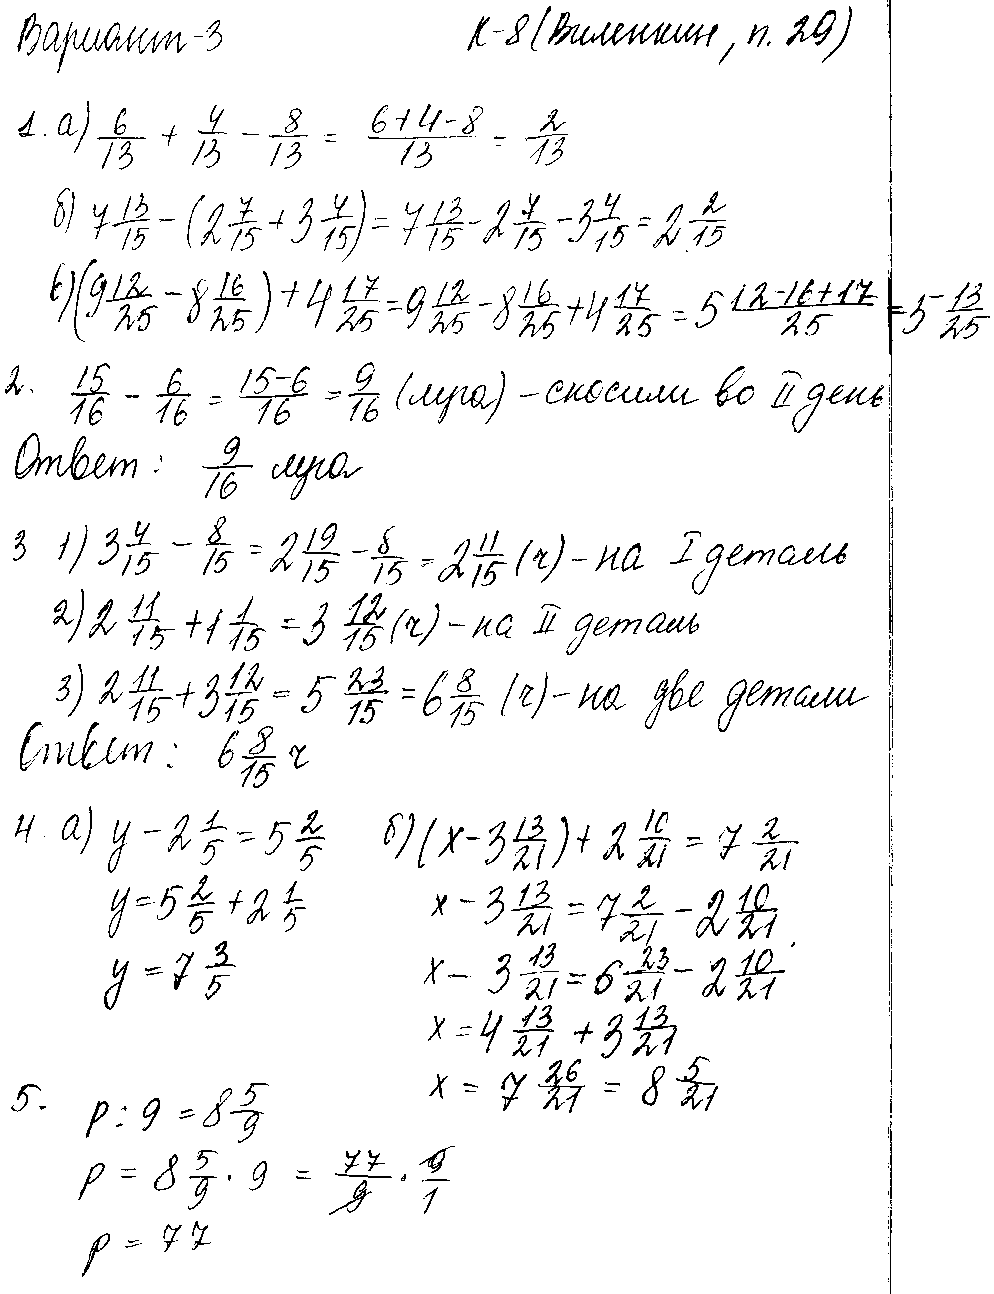 Вариант-3 К-8 (Виленкин, п. 29)
1. а) 6/13 + 4/13 - 8/13 = (6+4-8)/13 = 2/13
б) 7 13/15 - (2 7/15 + 3 4/15) = 7 13/15 - 2 7/15 - 3 4/15 = 2 2/15
в) (9 12/25 - 8 16/25) + 4 17/25 = 9 12/25 - 8 16/25 + 4 17/25 = 5 (12-16+17)/25 = 5 13/25
2. 15/16 - 6/16 = (15-6)/16 = 9/16 (луга) - скосили во II день
Ответ: 9/16 луга
3 1) 3 4/15 - 8/15 = 2 19/15 - 8/15 = 2 11/15 (ч) - на I деталь
2) 2 11/15 + 1 1/15 = 3 12/15 (ч) - на II деталь
3) 2 11/15 + 3 12/15 = 5 23/15 = 6 8/15 (ч) - на две детали
Ответ: 6 8/15 ч
4. а) y - 2 1/5 = 5 2/5
y = 5 2/5 + 2 1/5
y = 7 3/5
б) (x - 3 13/21) + 2 10/21 = 7 2/21
x - 3 13/21 = 7 2/21 - 2 10/21
x - 3 13/21 = 6 23/21 - 2 10/21
x = 4 13/21 + 3 13/21
x = 7 26/21 = 8 5/21
5. p : 9 = 8 5/9
p = 8 5/9 · 9 = 77/9 · 9/1
p = 77